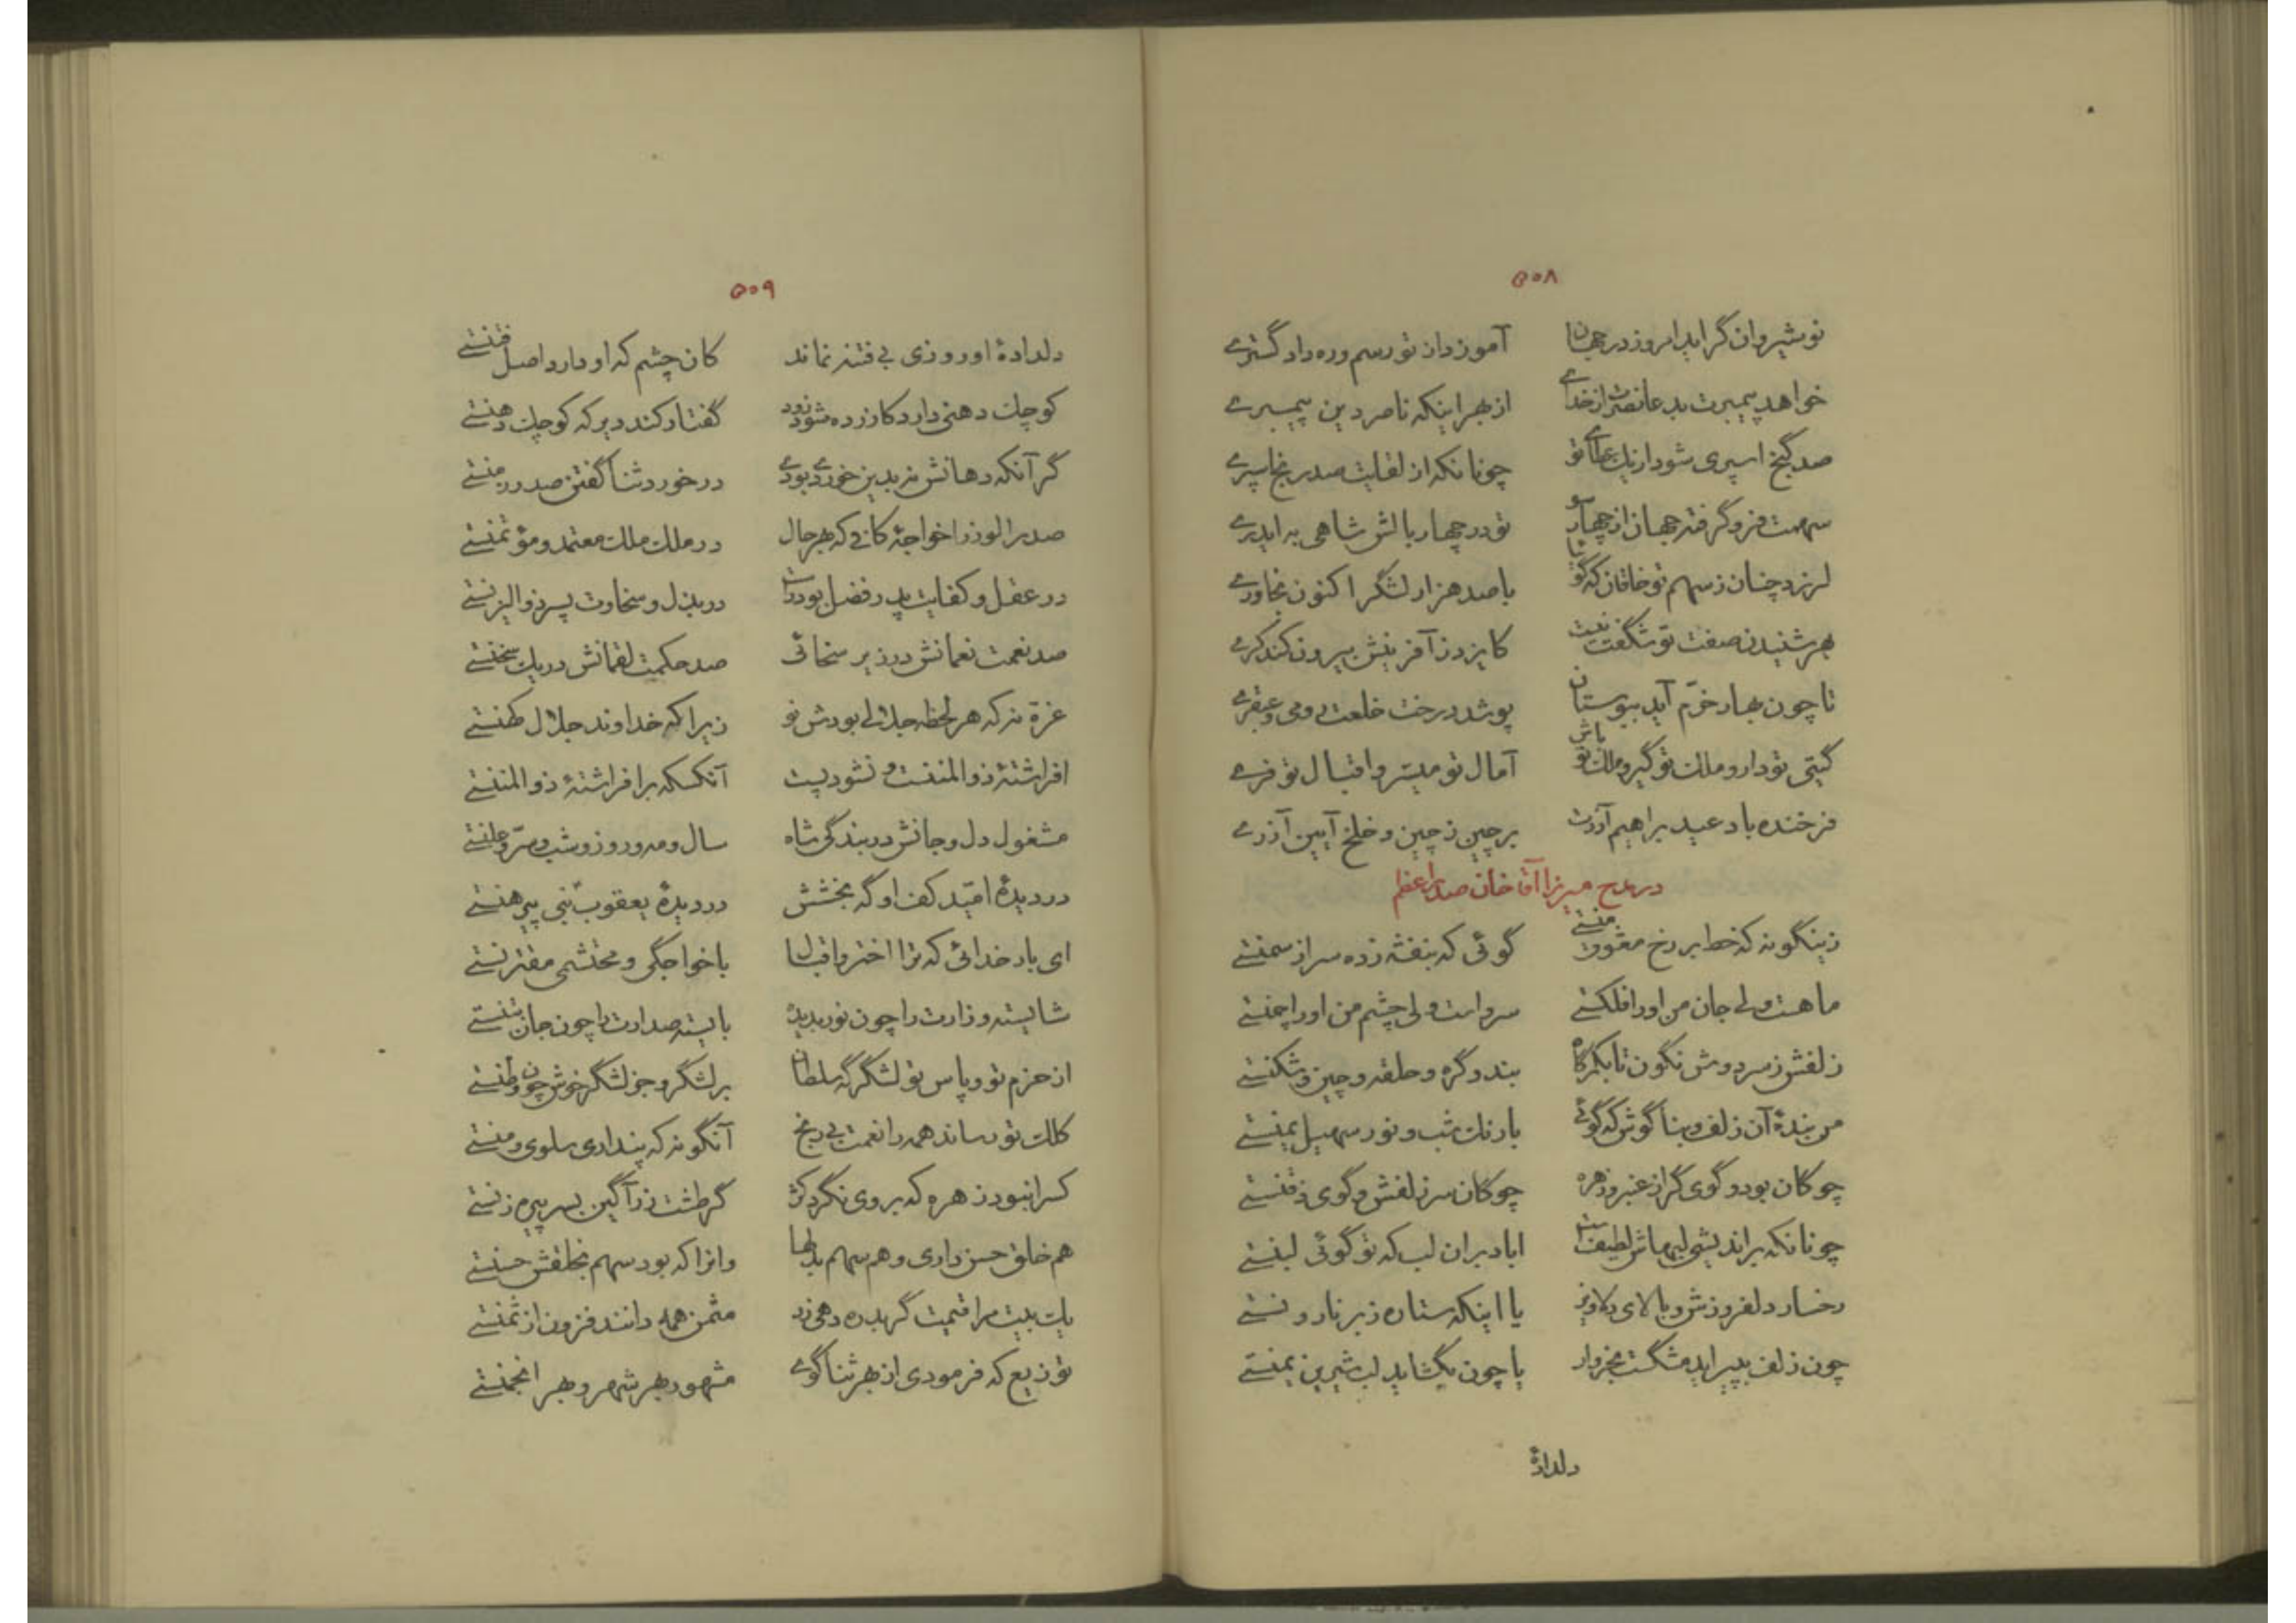 ۵۰۸
نوشیروان گر اید امروز در جهان آموزد از تو رسم و ره داد گستری
خواهد پیمبرت بدعا نصرت از خدای از بهر اینکه ناصر دین پیمبری
صد گنج اسپری شود از یک عطای تو چونانکه از لقایت صد رنج اسپری
سهمت فرو گرفته جهان از چهار سو تو در چهار بالش شاهی به ایدری
لرزد چنان ز سهم تو خاقان که گوئیا با صد هزار لشگر اکنون بخاوری
بهر شنیدن صفت تو شگفت نیست کایزد ز آفرینش بیرون کند کری
تا چون بهار خرّم آید ببوستان پوشد درخت خلعت رومی و عبقری
گیتی تو دار و ملک تو گیر و ملک تو باش آمال تو میسّر و اقبال تو فری
فرخنده باد عید براهیم آزرت برچین ز چین و خلخ آیین آذری
در مدح میرزا آقا خان صدر اعظم
زینگونه که خط بر رخ معشوق منستی گوئی که بنفشه زده سر از سمنستی
ماهست ولی جان من او را فلکستی سرو است ولی چشم من او را چمنستی
زلفش ز سر دوش نگون تا بکمرگاه بند و گره و حلقه و چین و شکنستی
من بندهٔ آن زلف و بناگوش که گوئی با رنگ شب و نور سهیل یمنستی
چوگان بود و گوی گر از عنبر و زهره چوگان سر زلفش و گوی ذقنستی
چونانکه براندیشی لبهاش لطیفست اباد بران لب که تو گوئی لبنستی
رخسار دلفروزش و بالای دلاویز یا اینکه ستاره ز بر نارونستی
چون زلف بپیراید مشگست بخروار یا چون بگشاید لب شیرین یمنستی
دلدادهٔ
۵۰۹
دلدادهٔ او روزی بی فتنه نماند کان چشم که او دارد اصل فتنستی
کوچک دهنی دارد کازرده شود زود گفتار کند دیر که کوچک دهنستی
گر آنکه دهانش نه بدین خوردی بودی در خورد ثنا گفتن صدر زمنستی
صدر الوزرا خواجهٔ کافی که بهر حال در ملک ملک معتمد و مؤتمنستی
در عقل و کفایت پدر فضل بود راست در بذل و سخاوت پسر ذوالیزنستی
صد نعمت نعمانش در زیر سخائی صد حکمت لقمانش در یک سخنستی
غزّه نه که هر لحظه جلالی بودش نو زیرا که خداوند جلال کهنستی
افراشتهٔ ذوالمننست و نشود پست آنکسکه برافراشتهٔ ذوالمننستی
مشغول دل و جانش در بندگی شاه سال و مه و روز و شب و سرّ و علنستی
در دیدهٔ امّید کف او گه بخشش در دیدهٔ یعقوب نبی پیرهنستی
ای بار خدائی که ترا اختر و اقبال با خواجگی و محتشمی مقترنستی
شایسته وزارت را چون نور بدیده بایسته صدارت را چون جان بتنستی
از حزم تو و پاس تو لشگرگه سلطان بر لشگر و جز لشگر خوش چون وطنستی
کلک تو رساند همه را نعمت بی رنج آنگونه که پنداری سلوی و منستی
کس را نبود زهره که بر وی نگرد کژ گر طشت زر آگین بسر پیره زنستی
هم خلق حسن داری و هم سهم بدلها وانرا که بود سهم بخلقش حسنستی
یک بیت مرا قیمت گر بدره دهی زر مثمن همه دانند فزون از ثمنستی
توزیع که فرمودی از بهر ثنا گوی مشهور بهر شهر و بهر انجمنستی